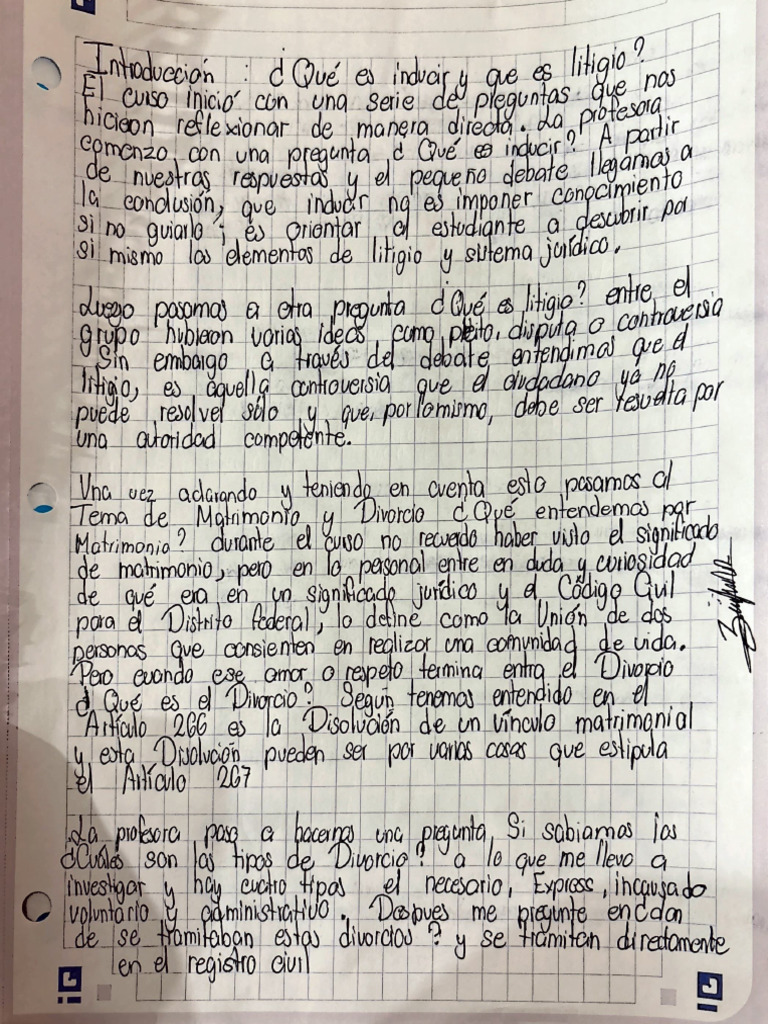 Introducción : ¿Qué es inducir y que es litigio?
El curso inició con una serie de preguntas que nos
hicieon reflexionar de manera directa. La profesora
comenzo con una pregunta ¿Qué es inducir? A partir
de nuestras respuestas y el pequeño debate llegamos a
la conclusión, que inducir no es imponer conocimiento
si no guiarlo; es orientar al estudiante a descubrir por
si mismo los elementos de litigio y sistema jurídico.
Luego pasamos a otra pregunta ¿Qué es litigio? entre el
grupo hubieron varias ideas como pleito, disputa o controversia
Sin embargo a través del debate entendimos que el
litigio, es aquella controversia que el ciudadano ya no
puede resolver sólo y que, por lo mismo, debe ser resuelta por
una autoridad competente.
Una vez aclarando y teniendo en cuenta esto pasamos al
Tema de Matrimonio y Divorcio ¿Qué entendemos por
Matrimonio? durante el curso no recuerdo haber visto el significado
de matrimonio, pero en lo personal entre en duda y curiosidad
de qué era en un significado jurídico y el Código Civil
para el Distrito federal, lo define como la Unión de dos
personas que consienten en realizar una comunidad de vida.
Pero cuando ese amor o respeto termina entra el Divorcio
¿Qué es el Divorcio? Según tenemos entendido en el
Artículo 266 es la Disolución de un vínculo matrimonial
y esta Disolución pueden ser por varias cosas que estipula
el Artículo 267
La profesora paso a hacernos una pregunta, Si sabiamos los
¿Cuáles son los tipos de Divorcio? a lo que me llevo a
investigar y hay cuatro tipos el necesario, Express, incausado
voluntario y administrativo. Despues me pregunte en cdon
de se tramitaban estos divorcios? y se tramitan directamente
en el registro civil